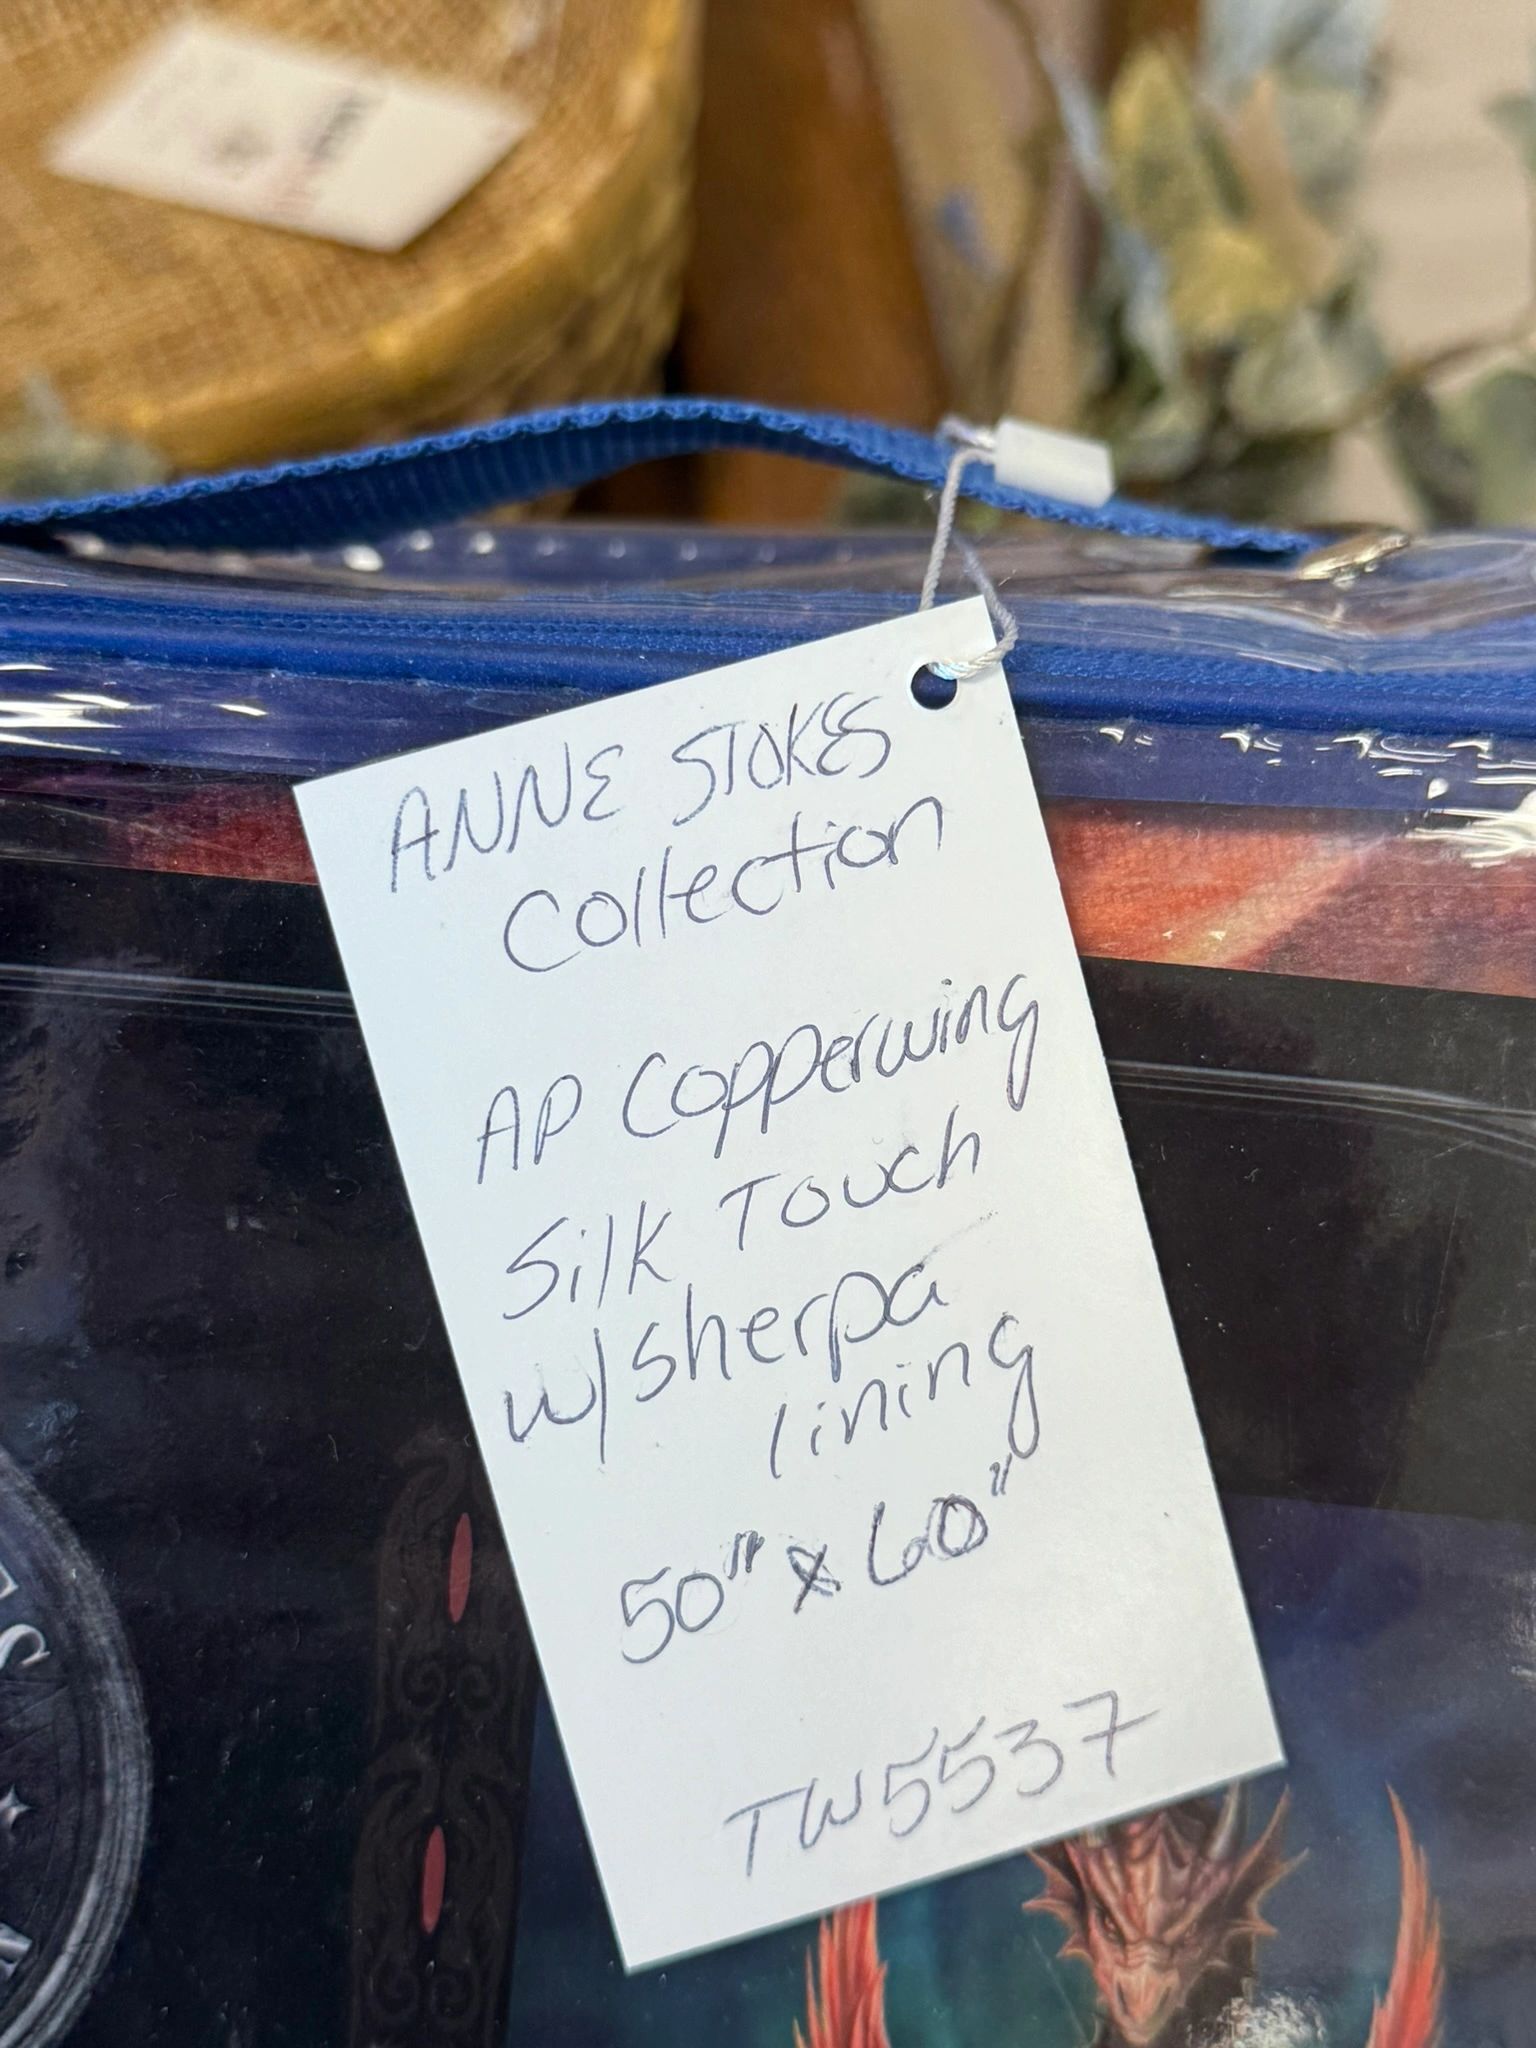 ANNE STOKES
Collection
AP Copperwing
Silk Touch
w/sherpa
lining
50" x 60"
TW5537